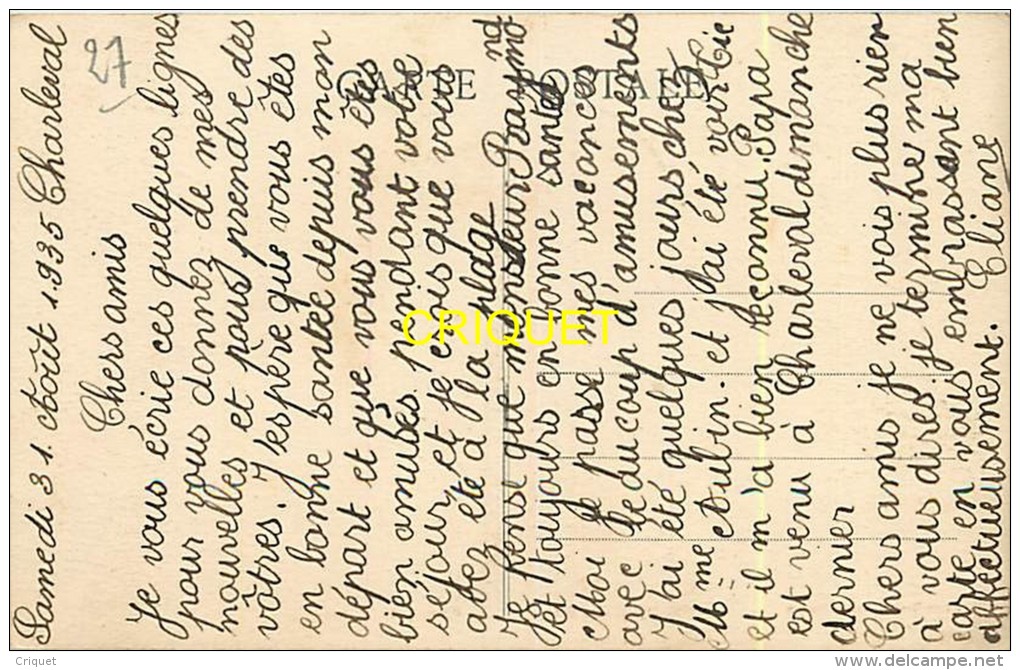 Samedi 31. Août 1.935 Charleval
27
Chers amis
Je vous écrie ces quelques lignes
pour vous donnez de mes
nouvelles et pour prendre des
vôtres. J'espère que vous êtes
en bonne santée depuis mon
départ et que vous vous êtes
bien amusés pendant votre
séjour, et je crois que vous
avez été à la plage
Je pense que monsieur Raymond
est toujours en bonne santée
Moi je passe mes vacances
avec beaucoup d'amusements
J'ai été quelques jours chez
Mme Aubin. et j'ai été voir
et il m'a bien reconnu. Papa
est venu à Charleval dimanche
dernier
Chers amis je ne vois plus rien
à vous dires je termine ma
carte en vous embrassent bien
affectueusement. Eliane
CARTE POSTALE
CRIQUET
Criquet
www.delcampe.net